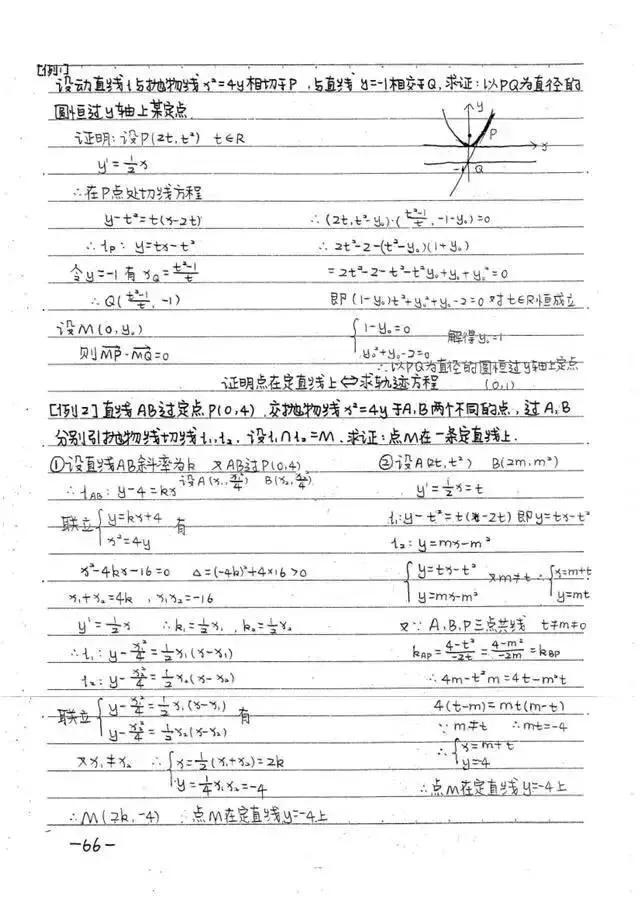 [例1]
设动直线l与抛物线x²=4y相切于P，与直线y=-1相交于Q，求证：以PQ为直径的
圆恒过y轴上某定点.
y
x
P
Q
-1
证明：设P(2t, t²) t∈R
y'=½x
∴在P点处切线方程
y-t²=t(x-2t)
∴lP: y=tx-t²
令y=-1有xQ=(t²-1)/t
∴Q((t²-1)/t, -1)
设M(0, y₀)
则MP·MQ=0
∴(2t, t²-y₀)·((t²-1)/t, -1-y₀)=0
∴2t²-2-(t²-y₀)(1+y₀)
=2t²-2-t²-t²y₀+y₀+y₀²=0
即(1-y₀)t²+y₀²+y₀-2=0对t∈R恒成立
{1-y₀=0
y₀²+y₀-2=0
解得y₀=1
∴以PQ为直径的圆恒过y轴上定点
(0,1)
证明点在定直线上⇔求轨迹方程
[例2]直线AB过定点P(0,4)，交抛物线x²=4y于A,B两个不同的点，过A,B
分别引抛物线切线l₁,l₂，设l₁∩l₂=M.求证：点M在一条定直线上.
①设直线AB斜率为k 又AB过P(0,4)
∴lAB: y-4=kx 设A(x₁, x₁²/4) B(x₂, x₂²/4)
联立{y=kx+4
x²=4y 有
x²-4kx-16=0 Δ=(-4k)²+4×16>0
x₁+x₂=4k , x₁x₂=-16
y'=½x ∴k₁=½x₁ , k₂=½x₂
∴l₁: y-x₁²/4=½x₁(x-x₁)
l₂: y-x₂²/4=½x₂(x-x₂)
联立{y-x₁²/4=½x₁(x-x₁)
y-x₂²/4=½x₂(x-x₂) 有
又x₁≠x₂ ∴{x=½(x₁+x₂)=2k
y=¼x₁x₂=-4
∴M(2k, -4) 点M在定直线y=-4上
②设A(2t, t²) B(2m, m²)
y'=½x=t
l₁: y-t²=t(x-2t)即y=tx-t²
l₂: y=mx-m²
{y=tx-t²
y=mx-m² 又m≠t ∴{x=m+t
y=mt
又∵A,B,P三点共线 t≠m≠0
kAP=(4-t²)/(-2t)=(4-m²)/(-2m)=kBP
∴4m-t²m=4t-m²t
4(t-m)=mt(m-t)
∵m≠t ∴mt=-4
∴{x=m+t
y=-4
∴点M在定直线y=-4上
-66-